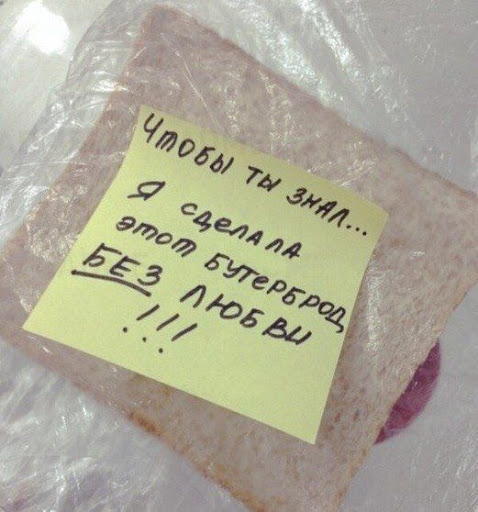 Чтобы ты знал...
Я сделала
этот бутерброд
БЕЗ любви
!!!